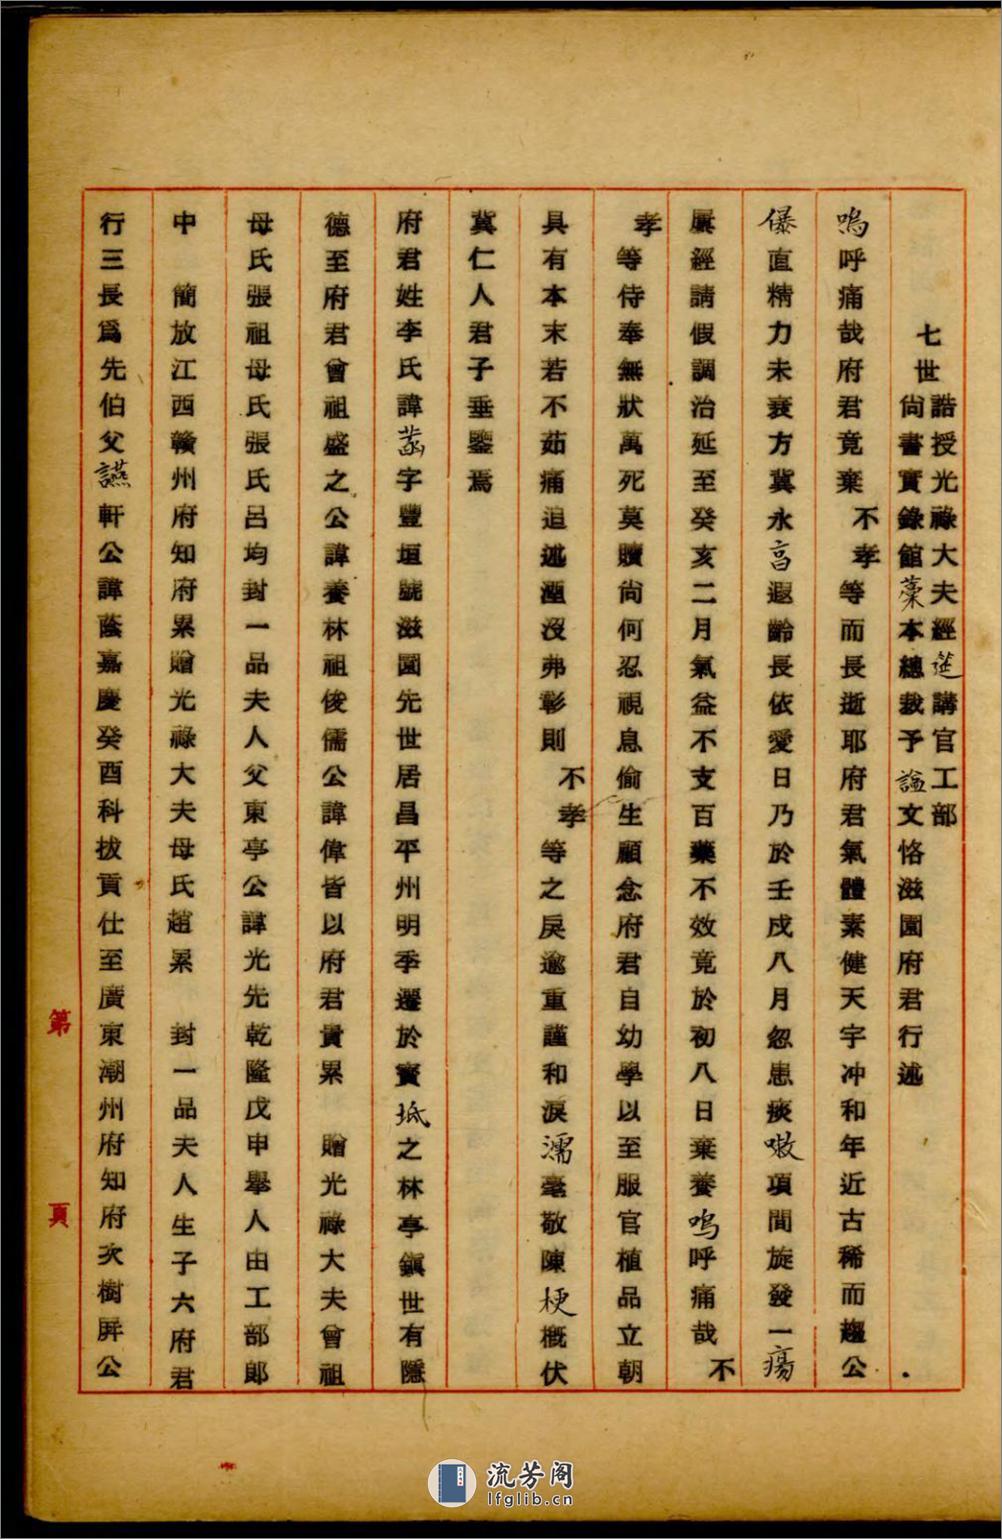 七世誥授光祿大夫經筵講官工部尙書實錄館藁本總裁予謚文恪滋園府君行述
嗚呼痛哉府君竟棄不孝等而長逝耶府君氣體素健天宇冲和年近古稀而趨公
儤直精力未衰方冀永享遐齡長依愛日乃於壬戌八月忽患痰嗽項間旋發一瘍
屢經請假調治延至癸亥二月氣益不支百藥不效竟於初八日棄養嗚呼痛哉不
孝等侍奉無狀萬死莫贖尙何忍視息偷生顧念府君自幼學以至服官植品立朝
具有本末若不茹痛追述湮沒弗彰則不孝等之戾逾重謹和淚濡毫敬陳梗槪伏
冀仁人君子垂鑒焉
府君姓李氏諱菡字豐垣號滋園先世居昌平州明季遷於寶坻之林亭鎭世有隱
德至府君曾祖盛之公諱養林祖俊儒公諱偉皆以府君貴累 贈光祿大夫曾祖
母氏張祖母氏張氏呂均封一品夫人父東亭公諱光先乾隆戊申舉人由工部郎
中 簡放江西贛州府知府累贈光祿大夫母氏趙累 封一品夫人生子六府君
行三長爲先伯父讌軒公諱蔭嘉慶癸酉科拔貢仕至廣東潮州府知府次樹屛公
第 頁
流芳阁
lfglib.cn